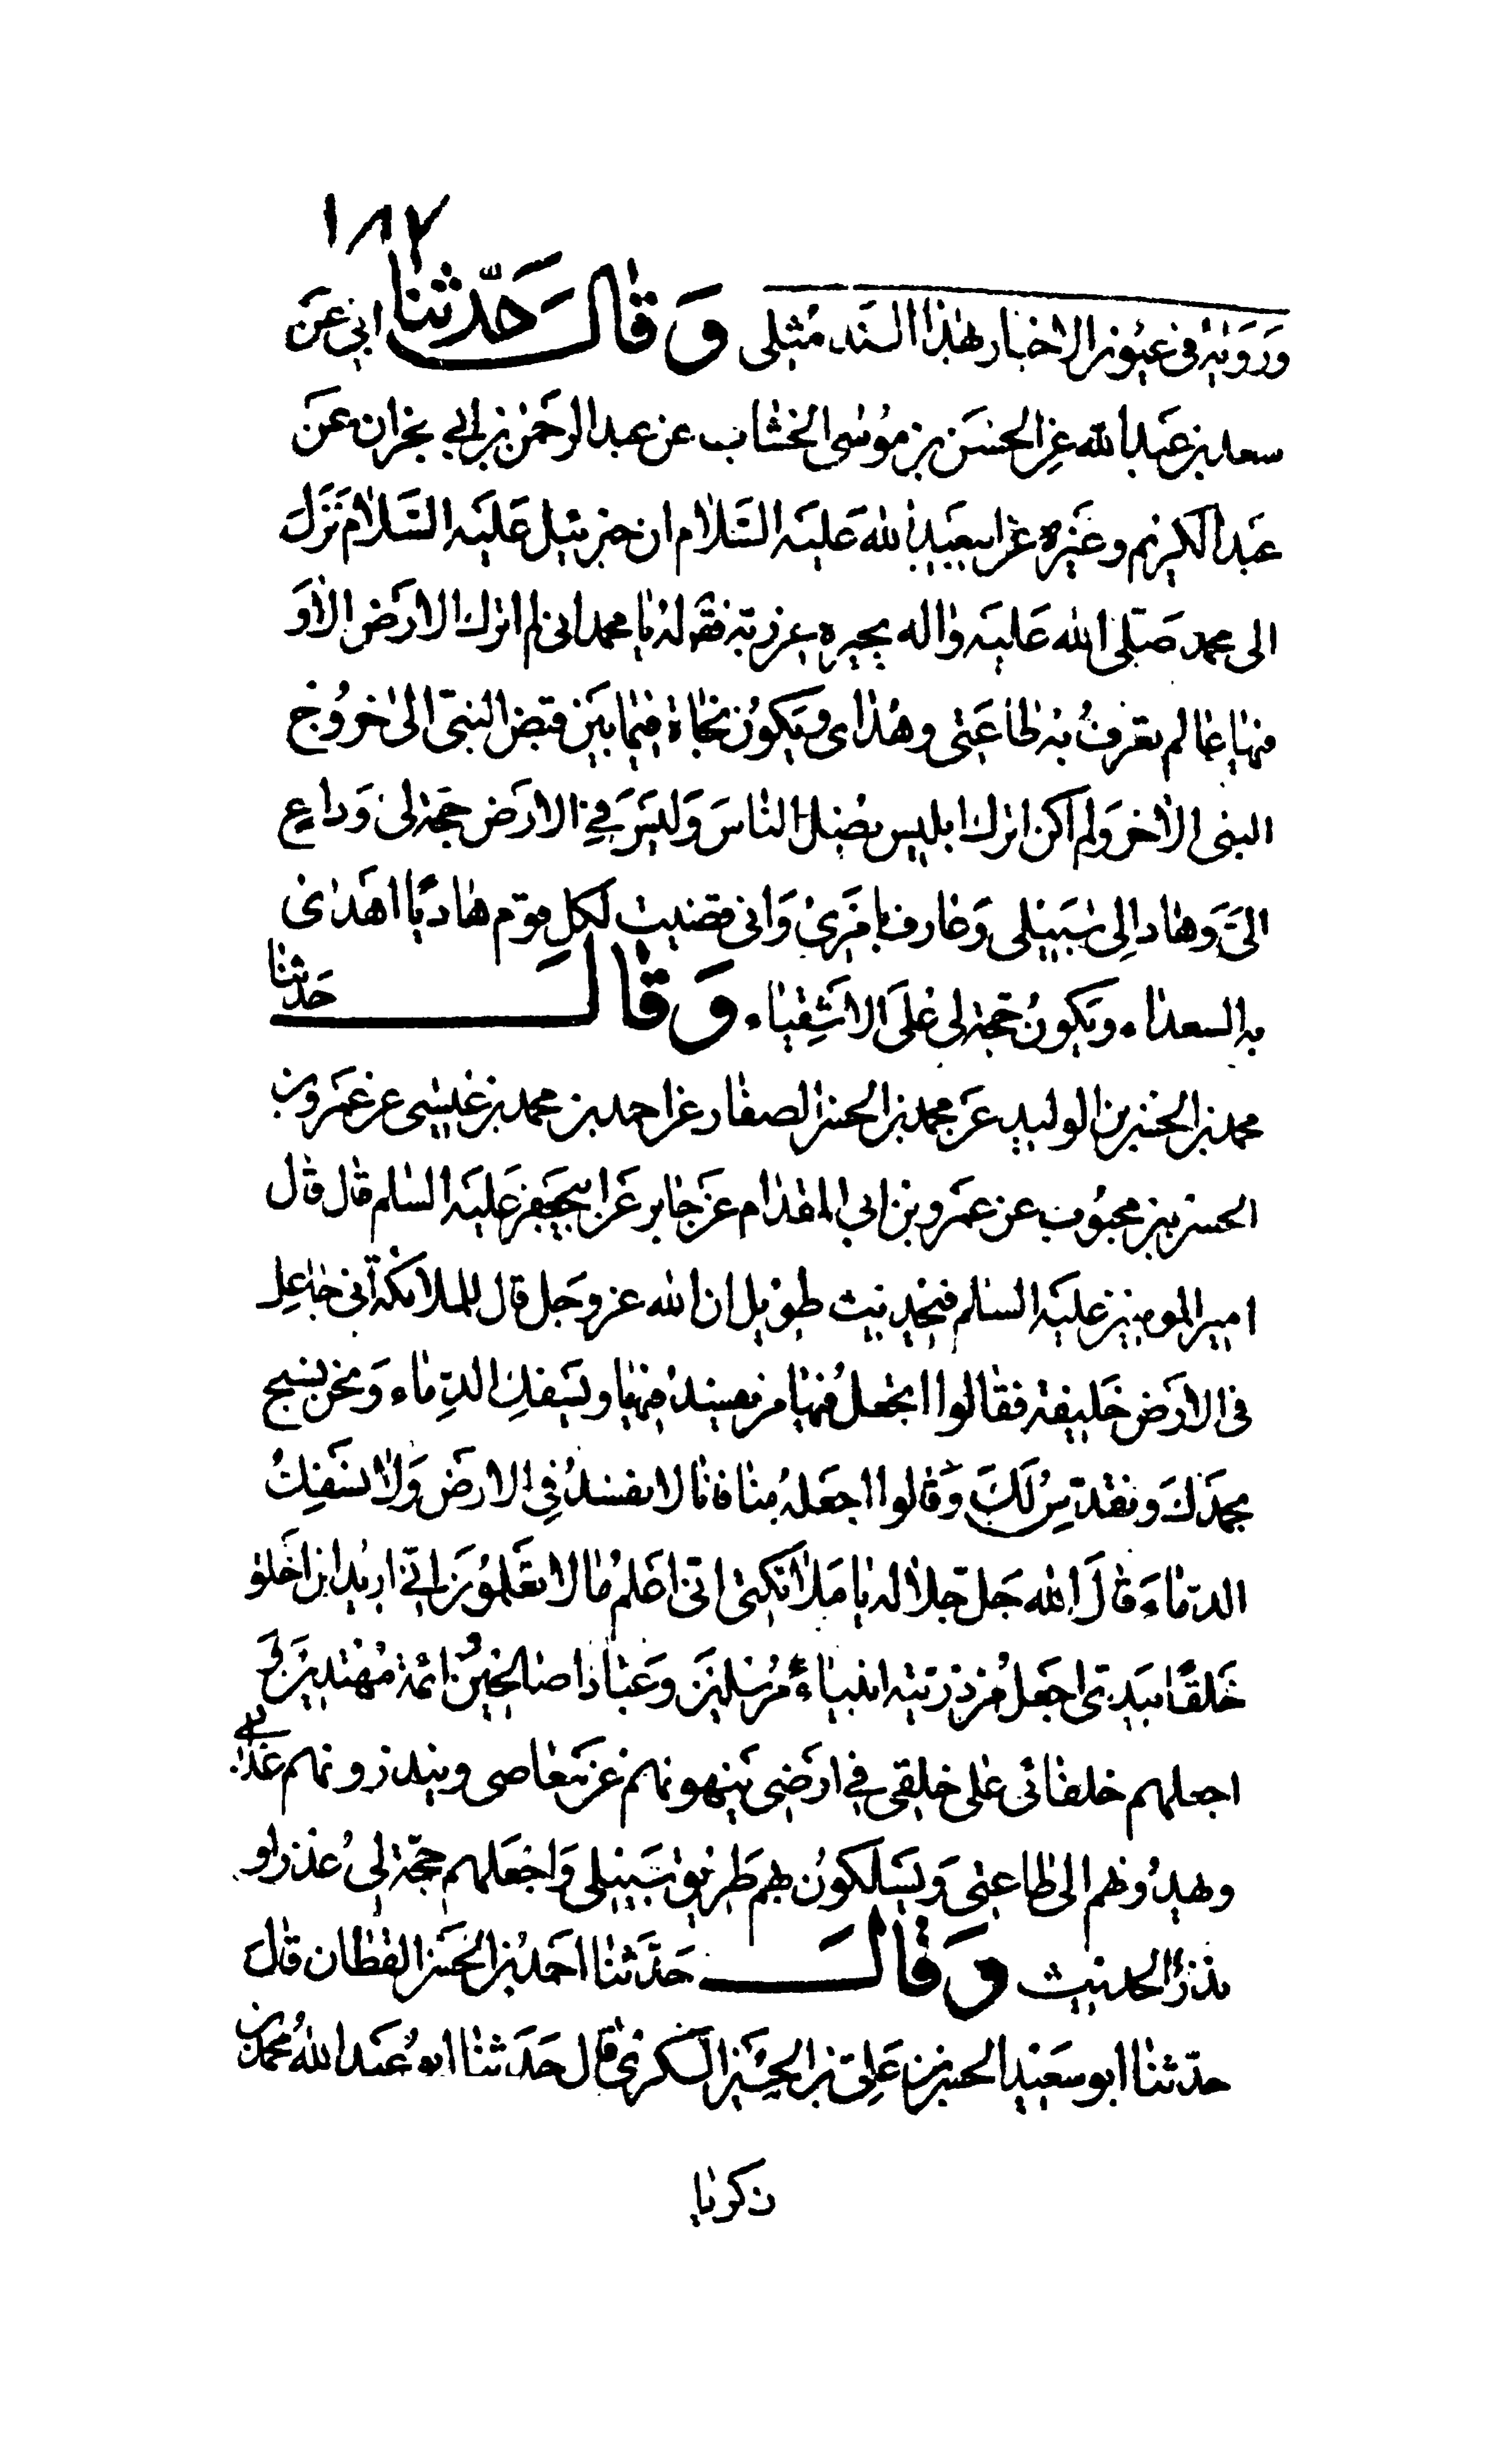 ١٨٧
ورويه فى عيون الاخبار بهذا السند مثله وقال حدّثنا ابي عن
سعد بن عبد الله عن الحسن بن موسى الخشاب عن عبد الرحمن بن ابي نجران عن
عبد الكريم وغيره عن ابيعبد الله عليه السلام ان جبرئيل عليه السلام نزل
الى محمد صلى الله عليه واله يخبره عن ربه فقوله يا محمد انى لم اترك الارض الاو
فيها عالم تعرف به طاعتى وهداى ويكون نجاة فيما بين قبض النبى الى خروج
النبى الاخر ولم اكن اترك ابليس يضل الناس وليس في الارض حجة لى وداع
الىّ وهاد الى سبيلى وعارف بامرى وانى قضيت لكل قوم هاديًا اهدى
به السعداء ويكون حجة لى على الاشقياء وقال حدثنا
محمد بن الحسن بن الوليد عن محمد بن الحسن الصفار عن احمد بن محمد بن عيسى عن عمرو بن
الحسن بن محبوب عن عمرو بن ابي المقدام عن جابر عن ابيجعفر عليه السلم قال قال
امير المومنين عليه السلم فيحديث طويل ان الله عز وجل قال للملائكة انى جاعل
فى الارض خليفة فقالوا اتجعل فيها من يفسد فيها ويسفك الدماء ونحن نسبح
بحمدك ونقدّس لك وقالوا اجعله منا فانا لا نفسد في الارض ولا نسفك
الدماء قال الله جل جلاله يا ملائكتى انى اعلم ما لا تعلمون انى اريد ان اخلق
خلقًا بيدى اجعل من ذريته انبياء مرسلين وعبادا صالحين ائمة مهتدين و
اجعلهم خلفائى على خلقى في ارضى ينهونهم عن معاصى وينذرونهم عذابي
ويهدونهم الى طاعتى ويسلكون بهم طريق سبيلى واجعلهم حجة لى عذرا و
نذرا الحديث وقال حدّثنا احمد بن الحسن القطان قال
حدّثنا ابو سعيد الحسن بن على بن الحسين السكرى قال حدثنا ابو عبد الله محمد بن
زكريا